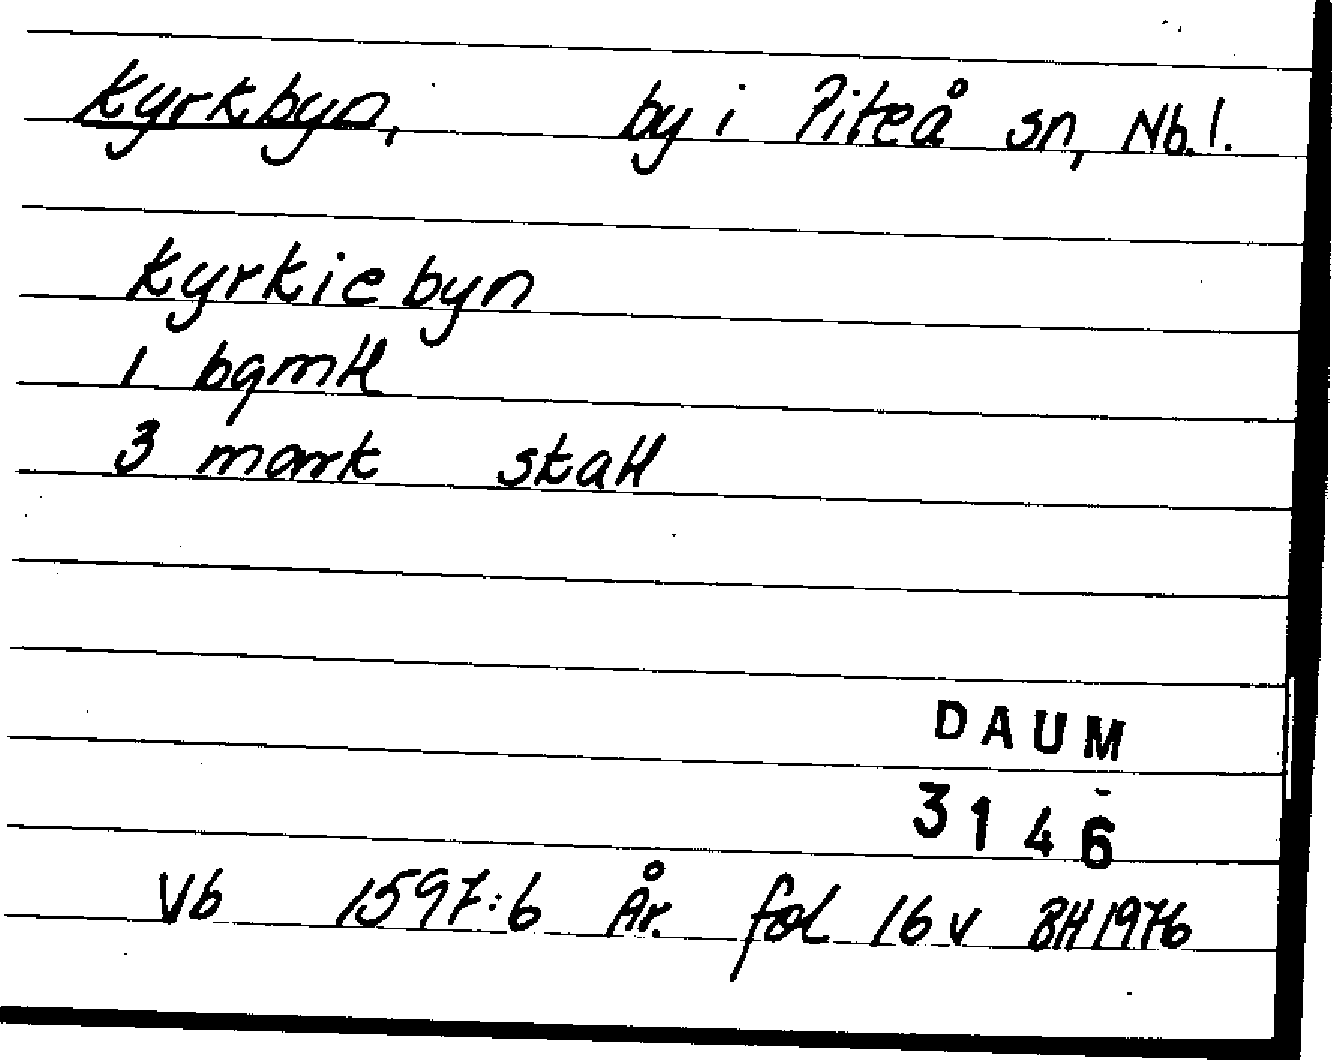 Kyrkbyn, by i Piteå sn, Nb.l.
Kyrkiebyn
1 bgmtl
3 mark skatt
DAUM
3146
Vb 1597:6 År. fol 16 v BH 1976